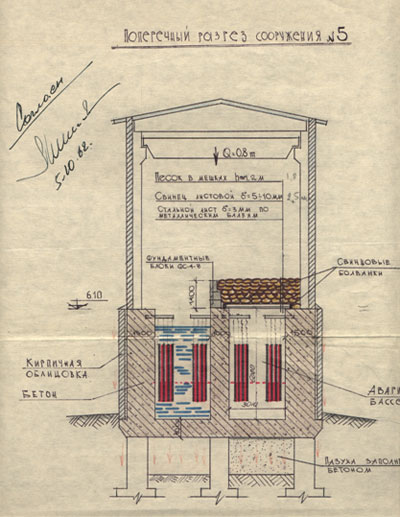 Поперечный разрез сооружения №5
Согласен
5-10 82.
Q=0.8т
Песок в мешках h=1,2м
Свинец листовой δ=5÷10мм
Стальной лист δ=3мм по
металлическим балкам
Фундаментные
блоки ФС-4-8
Свинцовые
болванки
1400
610
1500
1500
Кирпичная
облицовка
Бетон
Авари
Бассе
Пазуха заполне
бетоном